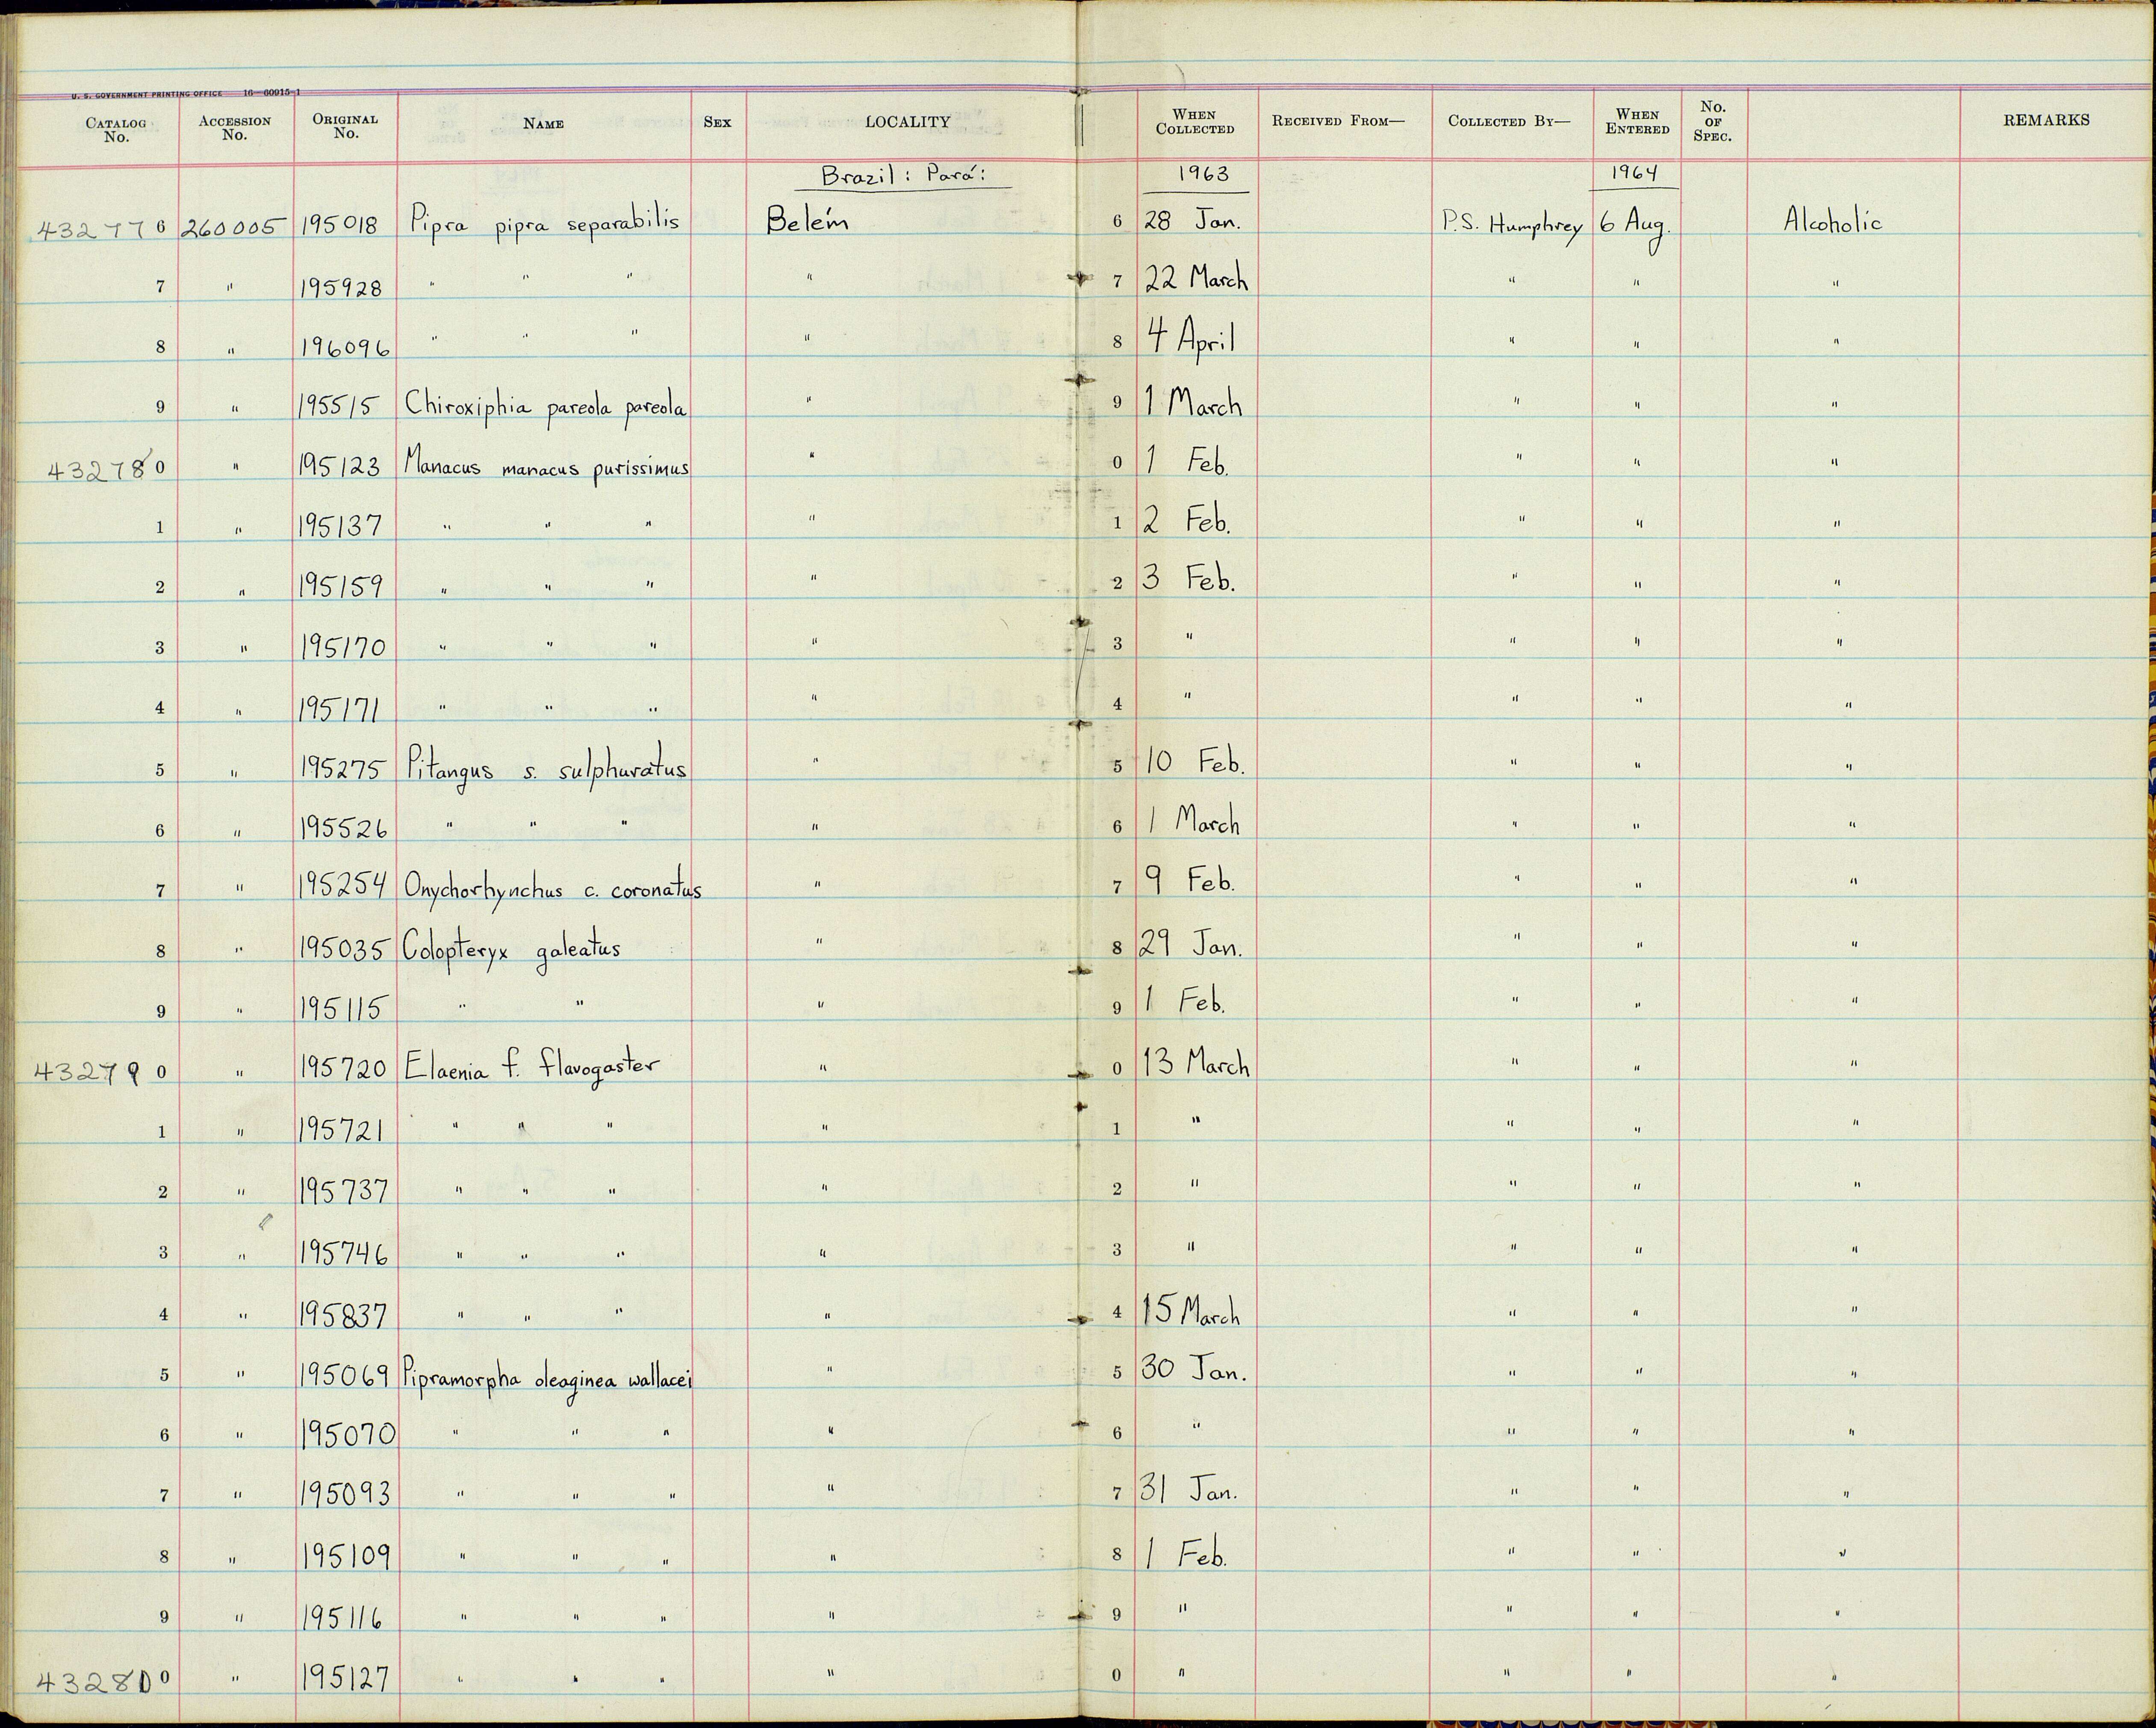 U. S. GOVERNMENT PRINTING OFFICE 16—60915-1
CATALOG No. ACCESSION No. ORIGINAL No. NAME SEX LOCALITY WHEN COLLECTED RECEIVED FROM— COLLECTED BY— WHEN ENTERED No. OF SPEC. REMARKS
Brazil : Pará: 1963 1964
432776 260005 195018 Pipra pipra separabilis Belém 6 28 Jan. P.S. Humphrey 6 Aug. Alcoholic
7 " 195928 " " " " 7 22 March " " "
8 " 196096 " " " " 8 4 April " " "
9 " 195515 Chiroxiphia pareola pareola " 9 1 March " " "
432780 " 195123 Manacus manacus purissimus " 0 1 Feb. " " "
1 " 195137 " " " " 1 2 Feb. " " "
2 " 195159 " " " " 2 3 Feb. " " "
3 " 195170 " " " " 3 " " " "
4 " 195171 " " " " 4 " " " "
5 " 195275 Pitangus s. sulphuratus " 5 10 Feb. " " "
6 " 195526 " " " " 6 1 March " " "
7 " 195254 Onychorhynchus c. coronatus " 7 9 Feb. " " "
8 " 195035 Colopteryx galeatus " 8 29 Jan. " " "
9 " 195115 " " " 9 1 Feb. " " "
432790 " 195720 Elaenia f. flavogaster " 0 13 March " " "
1 " 195721 " " " " 1 " " " "
2 " 195737 " " " " 2 " " " "
3 " 195746 " " " " 3 " " " "
4 " 195837 " " " " 4 15 March " " "
5 " 195069 Pipramorpha oleaginea wallacei " 5 30 Jan. " " "
6 " 195070 " " " " 6 " " " "
7 " 195093 " " " " 7 31 Jan. " " "
8 " 195109 " " " " 8 1 Feb. " " "
9 " 195116 " " " " 9 " " " "
432800 " 195127 " " " " 0 " " " "